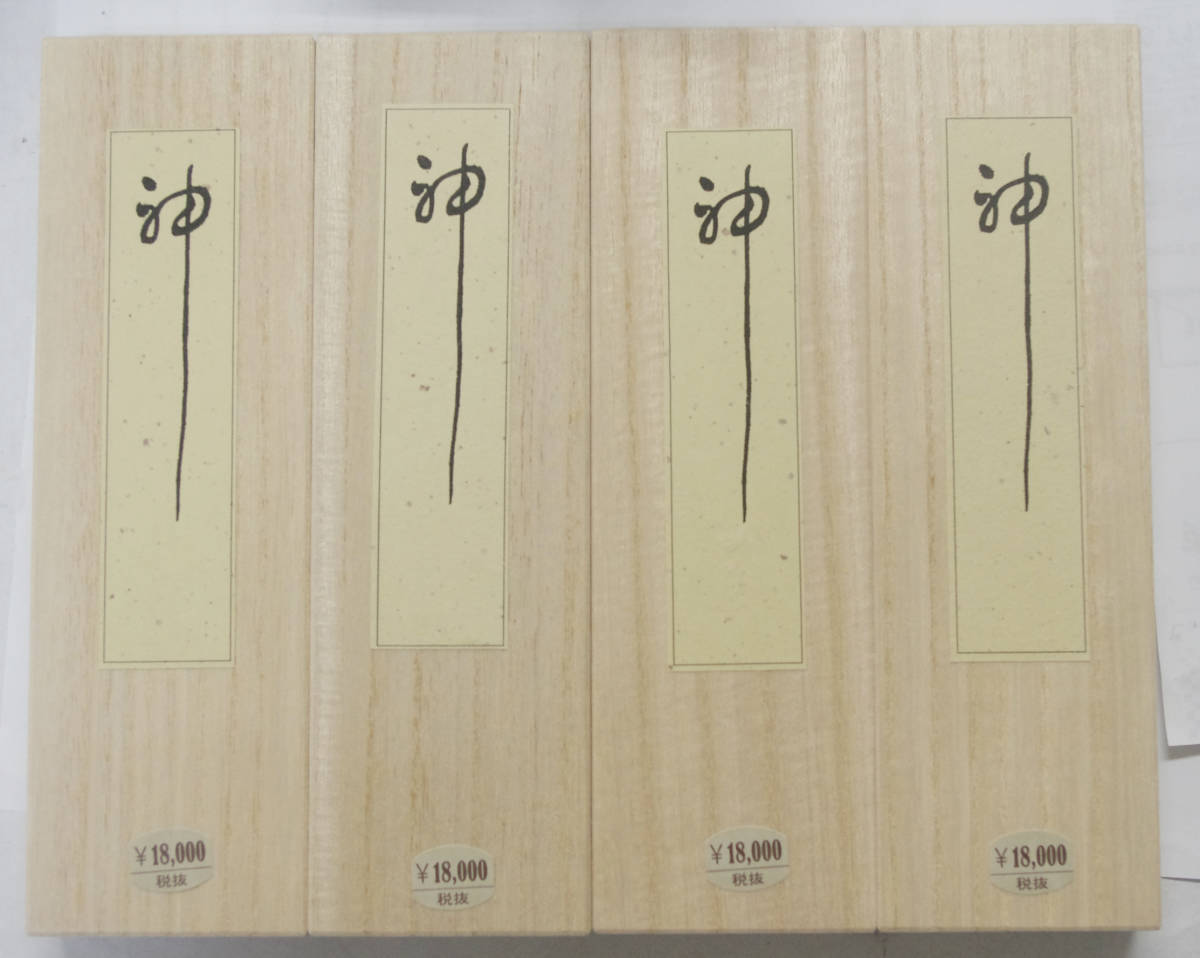 神
神
神
神
¥18,000
税抜
¥18,000
税抜
¥18,000
税抜
¥18,000
税抜